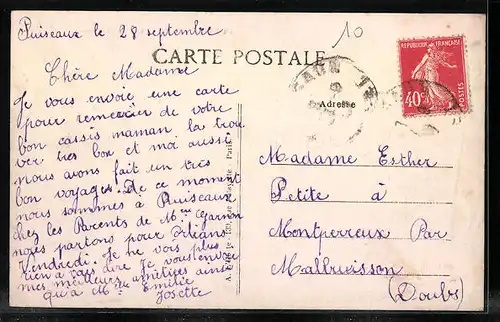 Puiseaux le 28 septembre
10
CARTE POSTALE
Chère Madame
Je vous envoie une carte
pour remercier de votre
bon cassis maman la trou
ver très bon et moi aussi.
nous avons fait un très
bon voyages. De ce moment
nous sommes à Puiseaux
chez les Parents de Mme Garnon
nous partons pour Orléans
Vendredi. Je ne vous plus
rien à vous dire Je vous envoie
mes meilleurs amitiées ainsi
qu'a Mme Emilie
Josette
Adresse
REPUBLIQUE FRANÇAISE
40c
POSTES
Madame Esther
Petite à
Montperreux Par
Malbuisson
(Doubs)